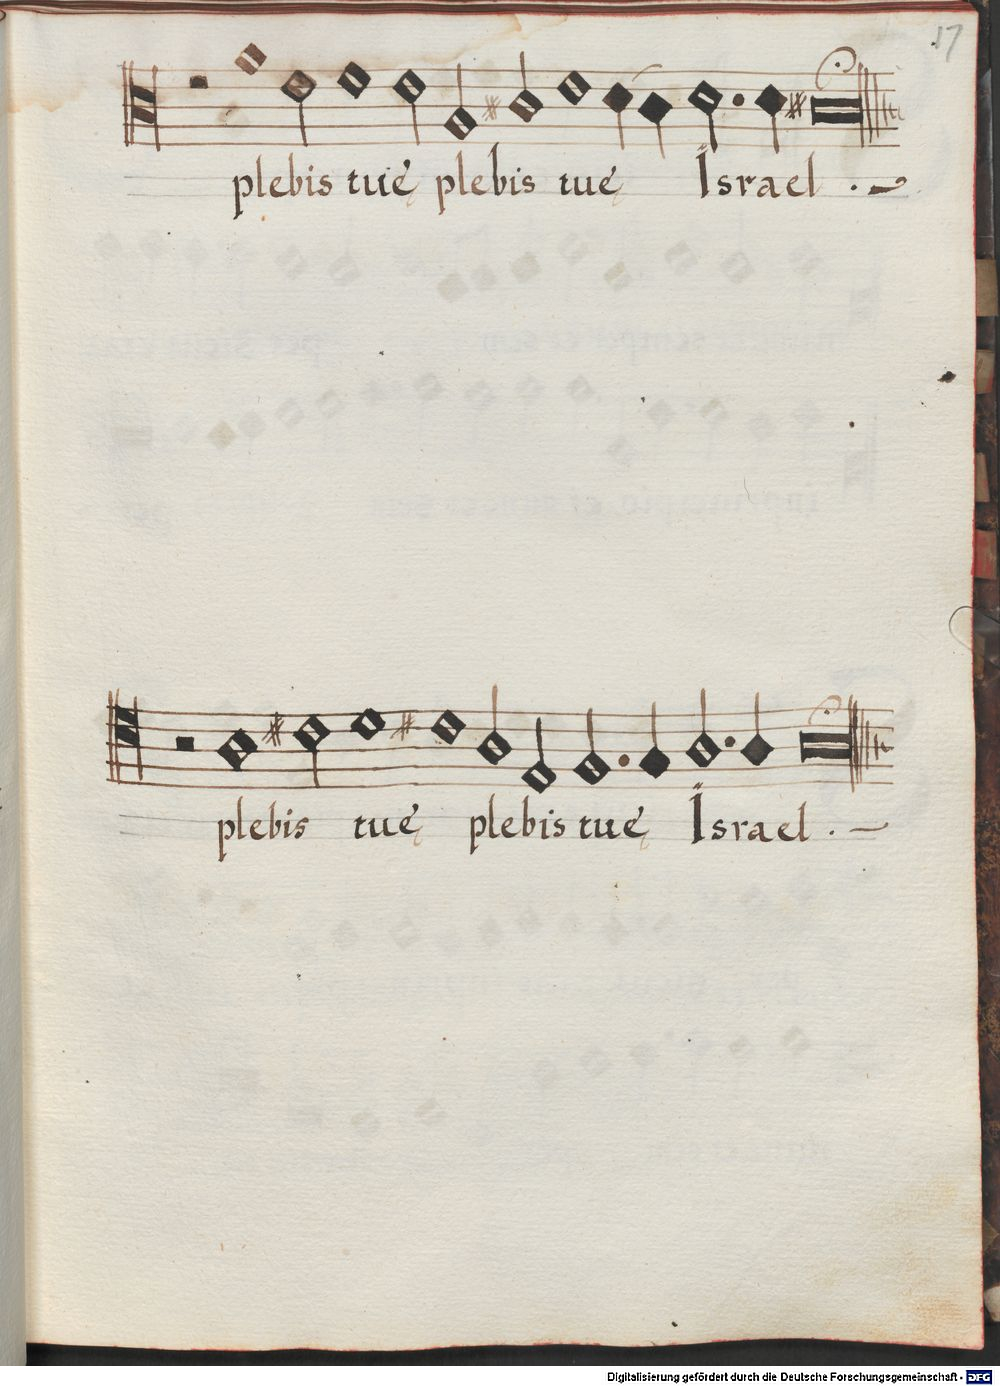 17
plebis tuę plebis tuę Israel .
plebis tuę plebis tuę Israel .
Digitalisierung gefördert durch die Deutsche Forschungsgemeinschaft - DFG